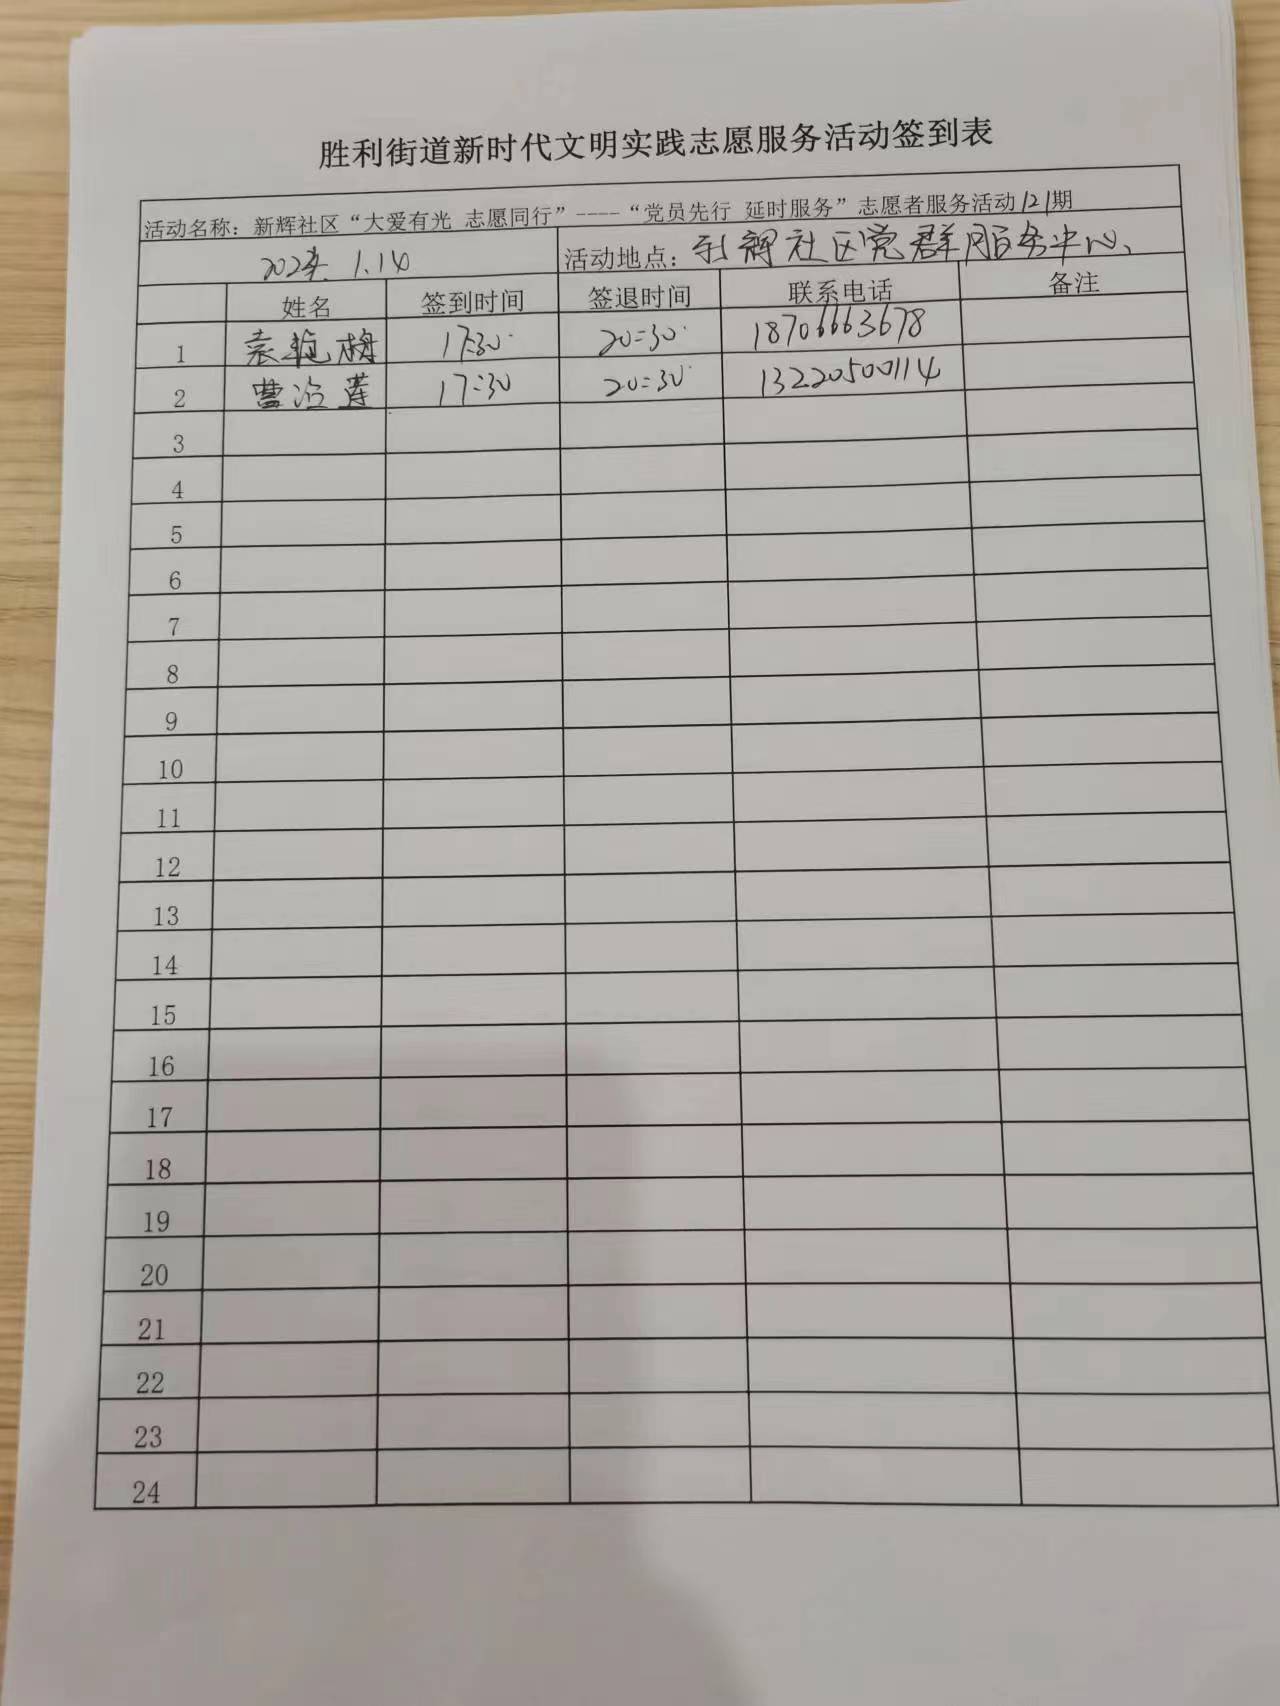 胜利街道新时代文明实践志愿服务活动签到表
活动名称：新辉社区“大爱有光 志愿同行”----“党员先行 延时服务”志愿者服务活动121期
1.14 活动地点：新辉社区党群服务中心
姓名 签到时间 签退时间 联系电话 备注
1 袁艳梅 17:30 20:30 18706663678
2 曹冶莲 17:30 20:30 13220500114
3
4
5
6
7
8
9
10
11
12
13
14
15
16
17
18
19
20
21
22
23
24